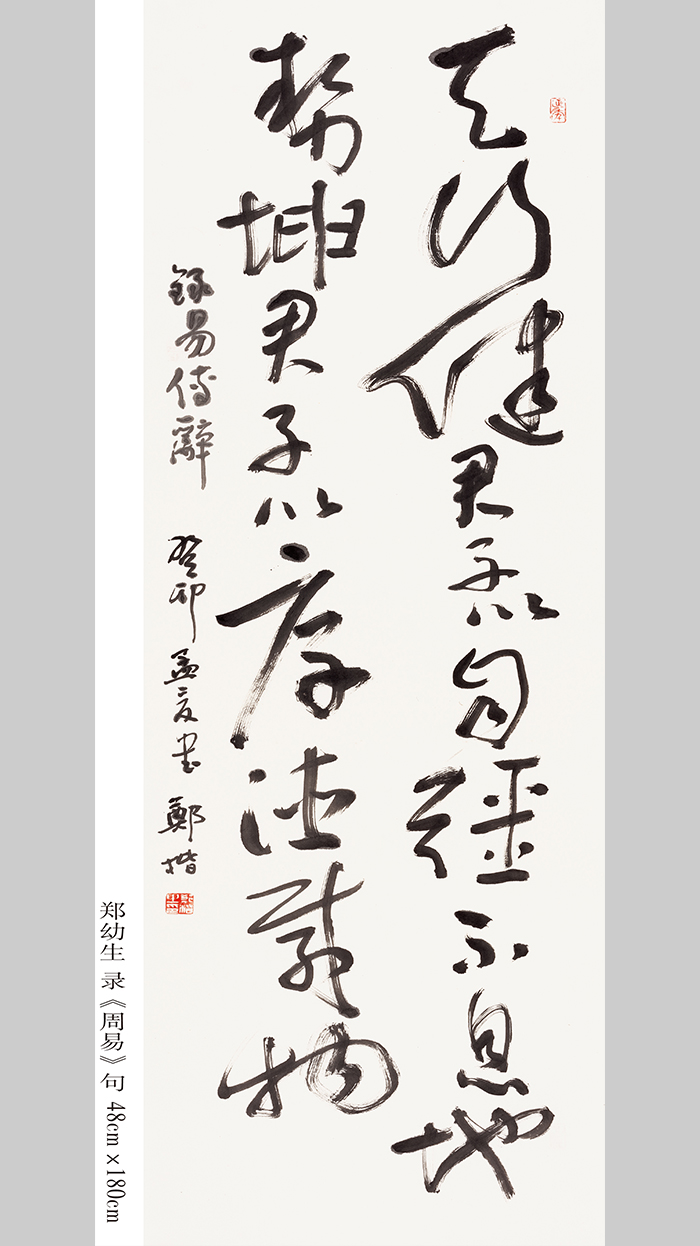 天行健君子以自彊不息地
势坤君子以厚德载物
録易傳辭 癸卯孟夏書 鄭楷
郑幼生 录《周易》句 48cm x180cm